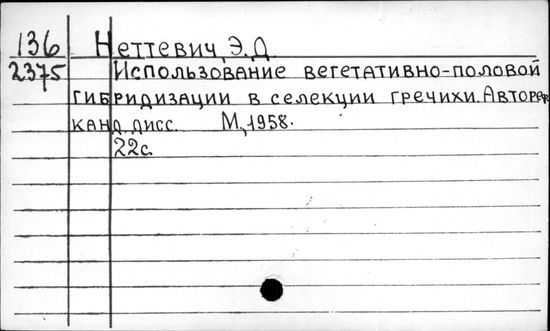 136 Неттевич, Э.Д.
2375 Использование вегетативно-половой
гибридизации в селекции гречихи. Автореф.
канд. дисс. М., 1958.
22с.